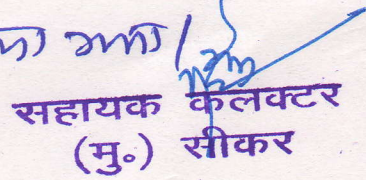 सहायक कलक्टर
(मु॰) सीकर